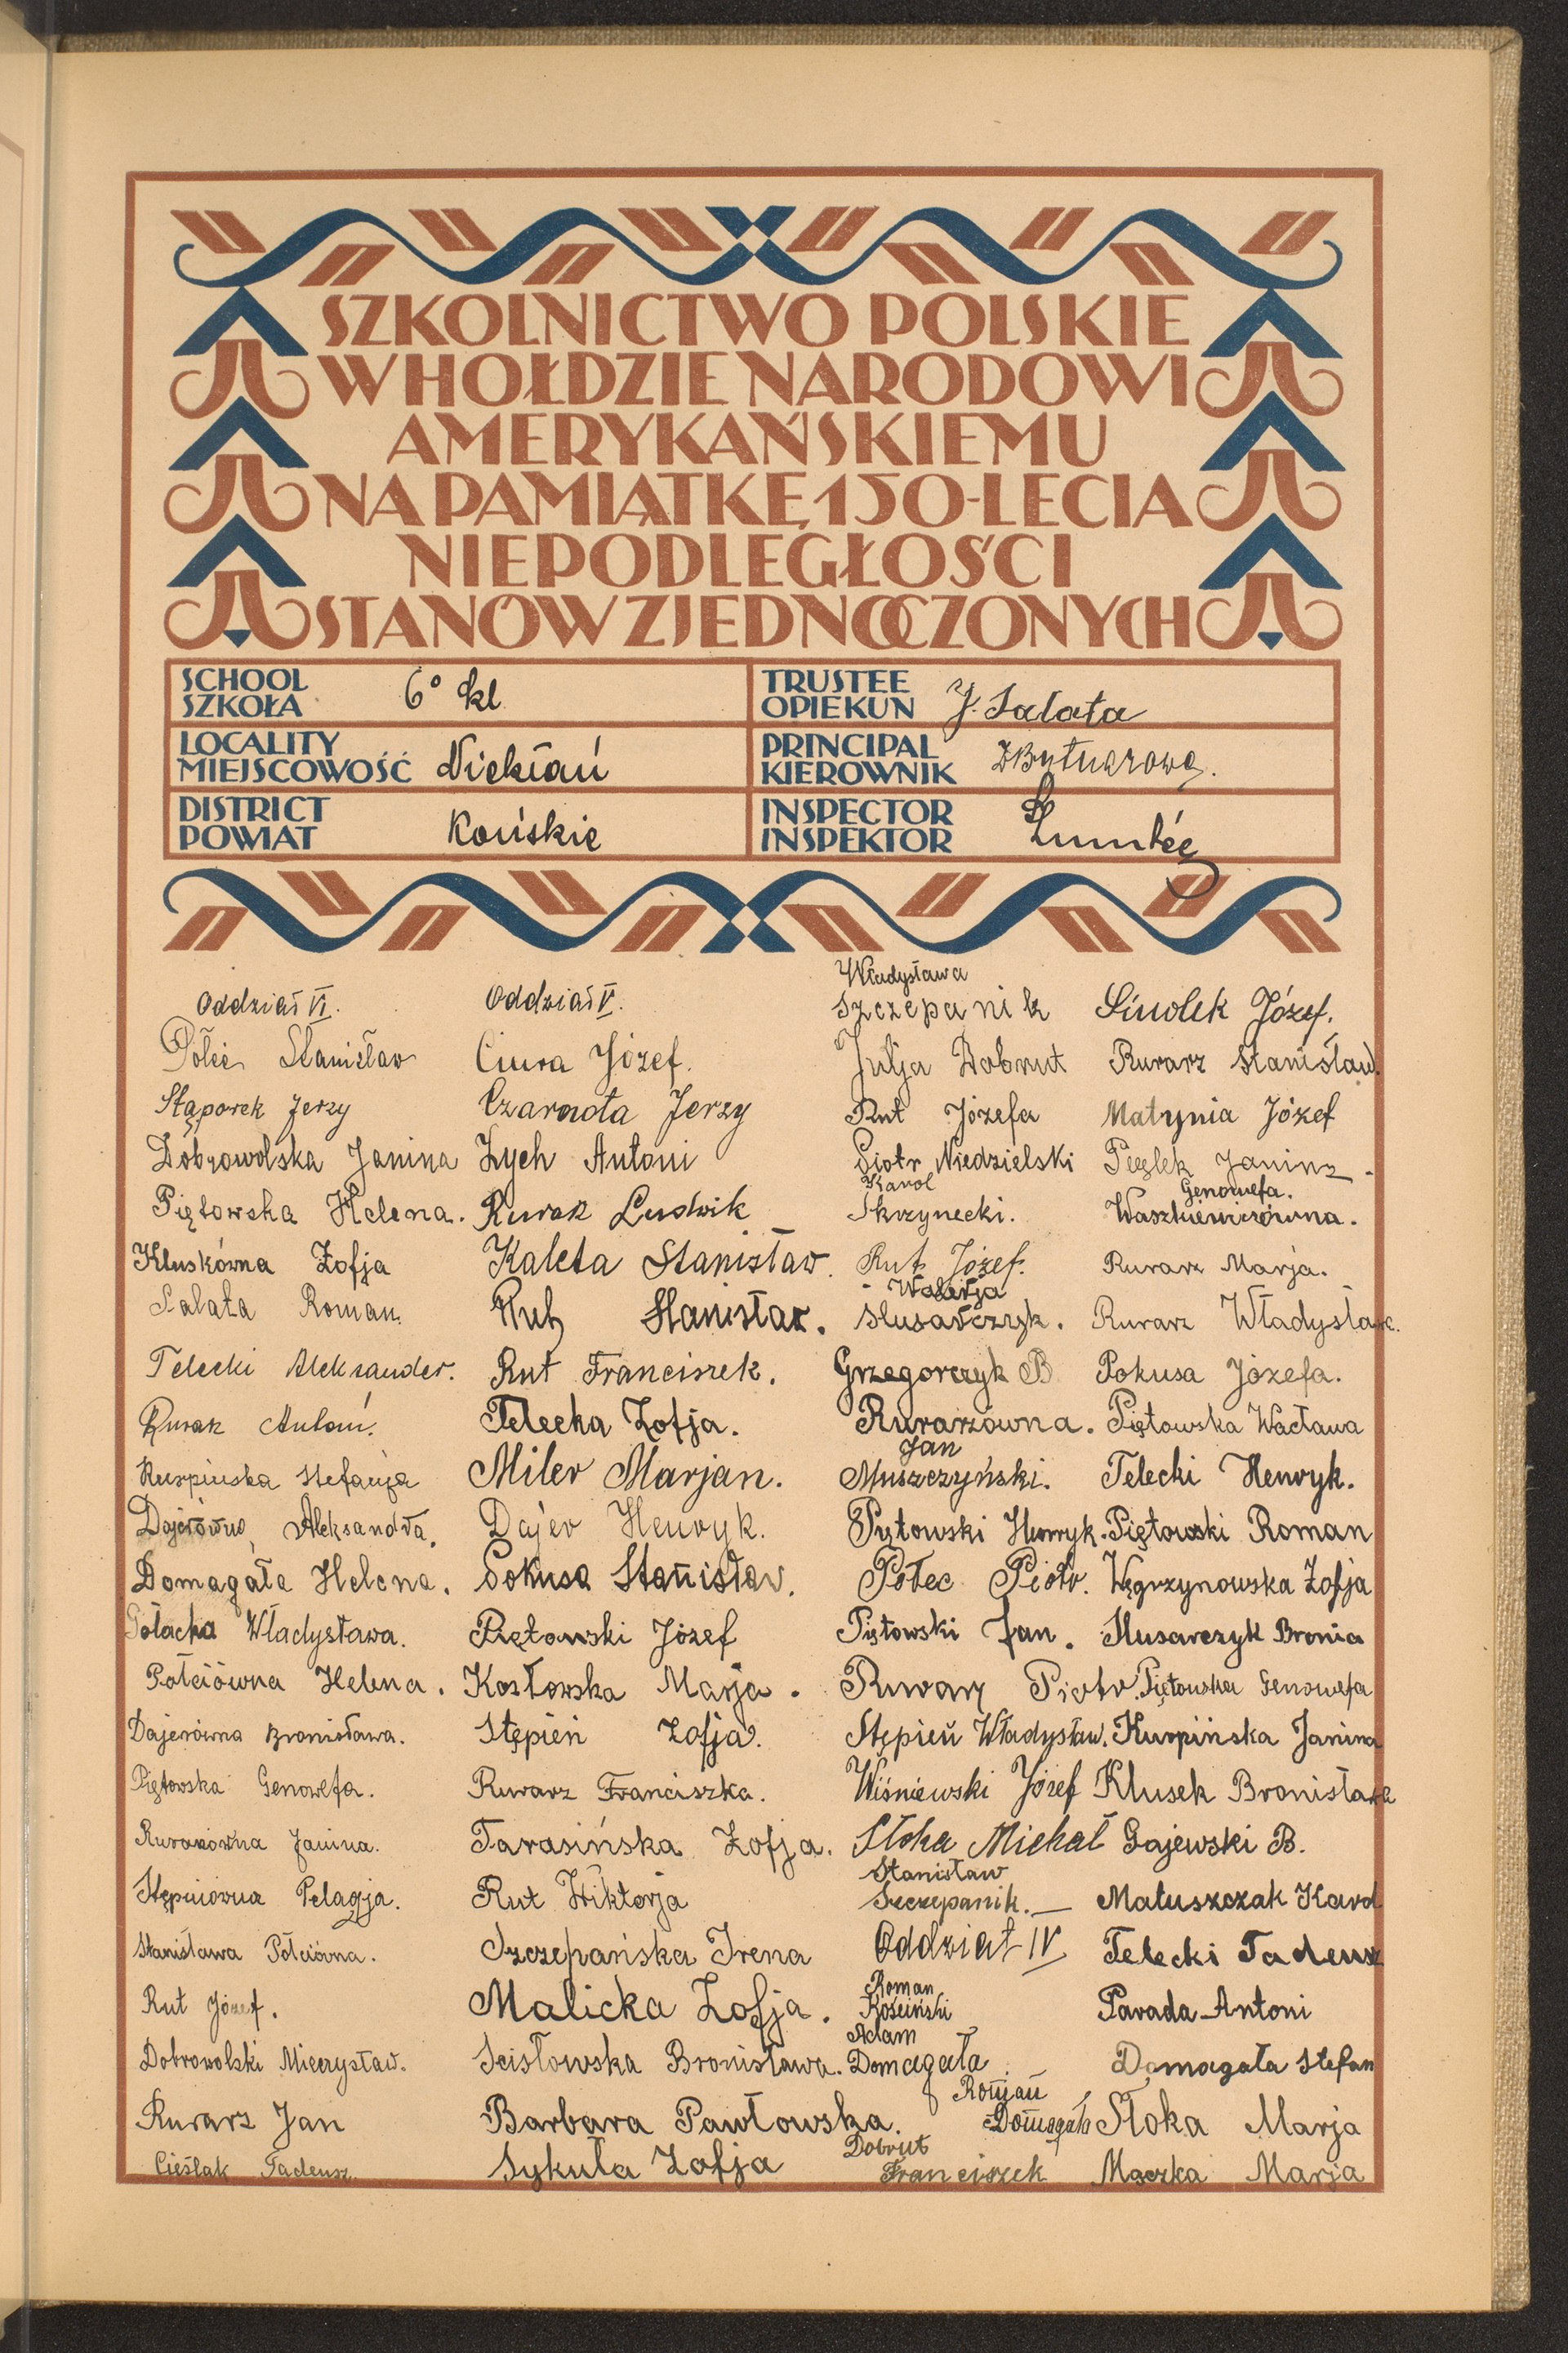 SZKOLNICTWO POLSKIE
W HOŁDZIE NARODOWI
AMERYKAŃSKIEMU
NA PAMIĄTKĘ 150-LECIA
NIEPODLEGŁOŚCI
STANÓW ZJEDNOCZONYCH
SCHOOL
SZKOŁA
6º kl
TRUSTEE
OPIEKUN
J. Salata
LOCALITY
MIEJSCOWOŚĆ
Niekłań
PRINCIPAL
KIEROWNIK
DISTRICT
POWIAT
Końskie
INSPECTOR
INSPEKTOR
Oddział VI.
Połeć Stanisław
Stąporek Jerzy
Dobrowolska Janina
Piętowska Helena.
Kluskówna Zofja
Salata Roman.
Telecki Aleksander.
Rurarz Antoni.
Kurpińska Stefanja
Dajerówna Aleksandra.
Domagała Helena.
Gołacka Władysława.
Połciówna Helena.
Dajerówna Bronisława.
Piętowska Genowefa.
Rurarzówna Janina.
Stępniówna Pelagja.
Stanisława Połciówna.
Rut Józef.
Dobrowolski Mieczysław.
Rurarz Jan
Cieślak Tadeusz
Oddział V.
Ciura Józef.
Czarnota Jerzy
Zych Antoni
Rurarz Ludwik
Kaleta Stanisław.
Rut Stanisław.
Rut Franciszek.
Telecka Zofja.
Miler Marjan.
Dajer Henryk.
Pokusa Stanisław.
Piętowski Józef
Kozłowska Marja.
Stępień Zofja.
Rurarz Franciszka.
Tarasińska Zofja.
Rut Wiktorja
Szczepańska Irena
Malicka Zofja.
Scisłowska Bronisława.
Barbara Pawłowska.
Sykuła Zofja
Władysława
Szczepanik
Julja Dobrut
Rut Józefa
Piotr Niedzielski
Karol
Skrzynecki.
Rut Józef.
Walerja
Slusarczyk.
Grzegorczyk B
Rurarzówna.
Jan
Muszczyński.
Piętowski Henryk.
Połec Piotr.
Piętowski Jan.
Rurarz Piotr.
Stępień Władysław.
Wiśniewski Józef
Słoka Michał
Stanisław
Szczepanik.
Oddział IV
Roman
Kościński
Adam
Domagała
Roman
Domagała
Dobrut
Franciszek
Smolek Józef.
Rurarz Stanisław.
Matynia Józef
Pięlek Janina.
Genowefa.
Waszkiewiczówna.
Rurarz Marja.
Rurarz Władysław.
Pokusa Józefa.
Piętowska Wacława
Telecki Henryk.
Piętowski Roman
Węgrzynowska Zofja
Slusarczyk Bronia
Piętowska Genowefa
Kurpińska Janina
Klusek Bronisława
Gajewski B.
Matuszczak Karol
Telecki Tadeusz
Parada Antoni
Domagała Stefan
Słoka Marja
Mączka Marja